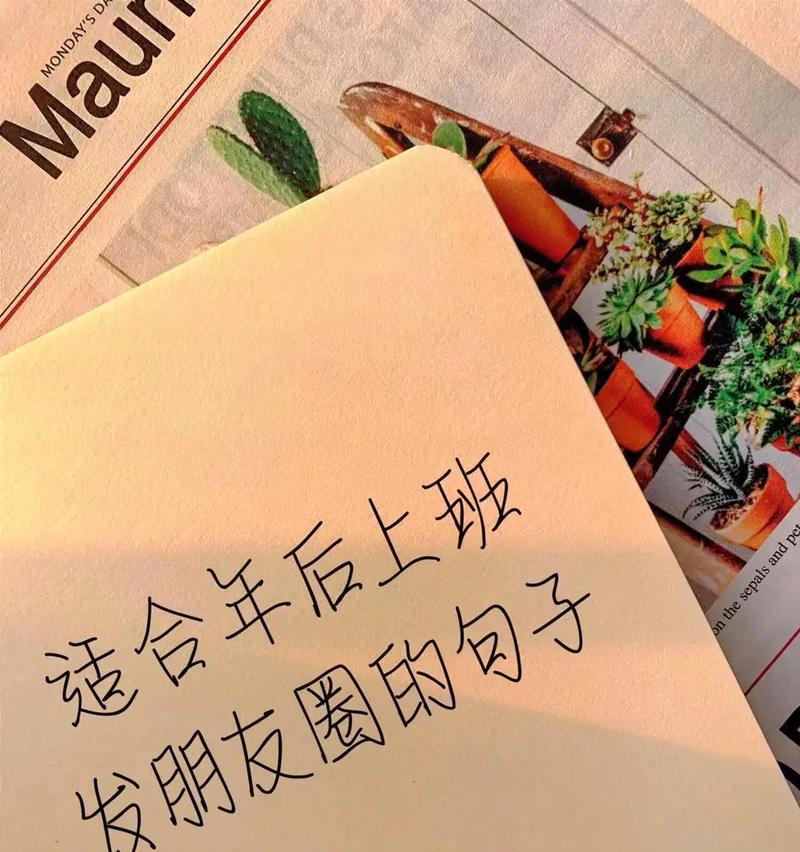 MONDAY'S DA
Maur
适合年后上班
发朋友圈的句子
on the sepals and pet